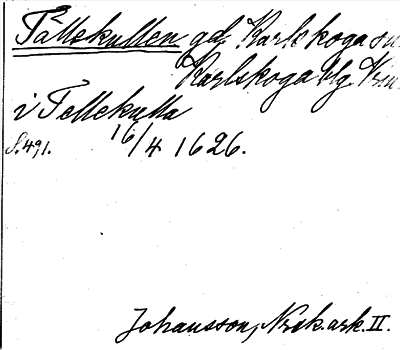 Tällekullen gd, Karlskoga sn
Karlskoga blg
i Tellekulla
S. 491. 16/4 1626.
Johansson, Norsk. ark. II.